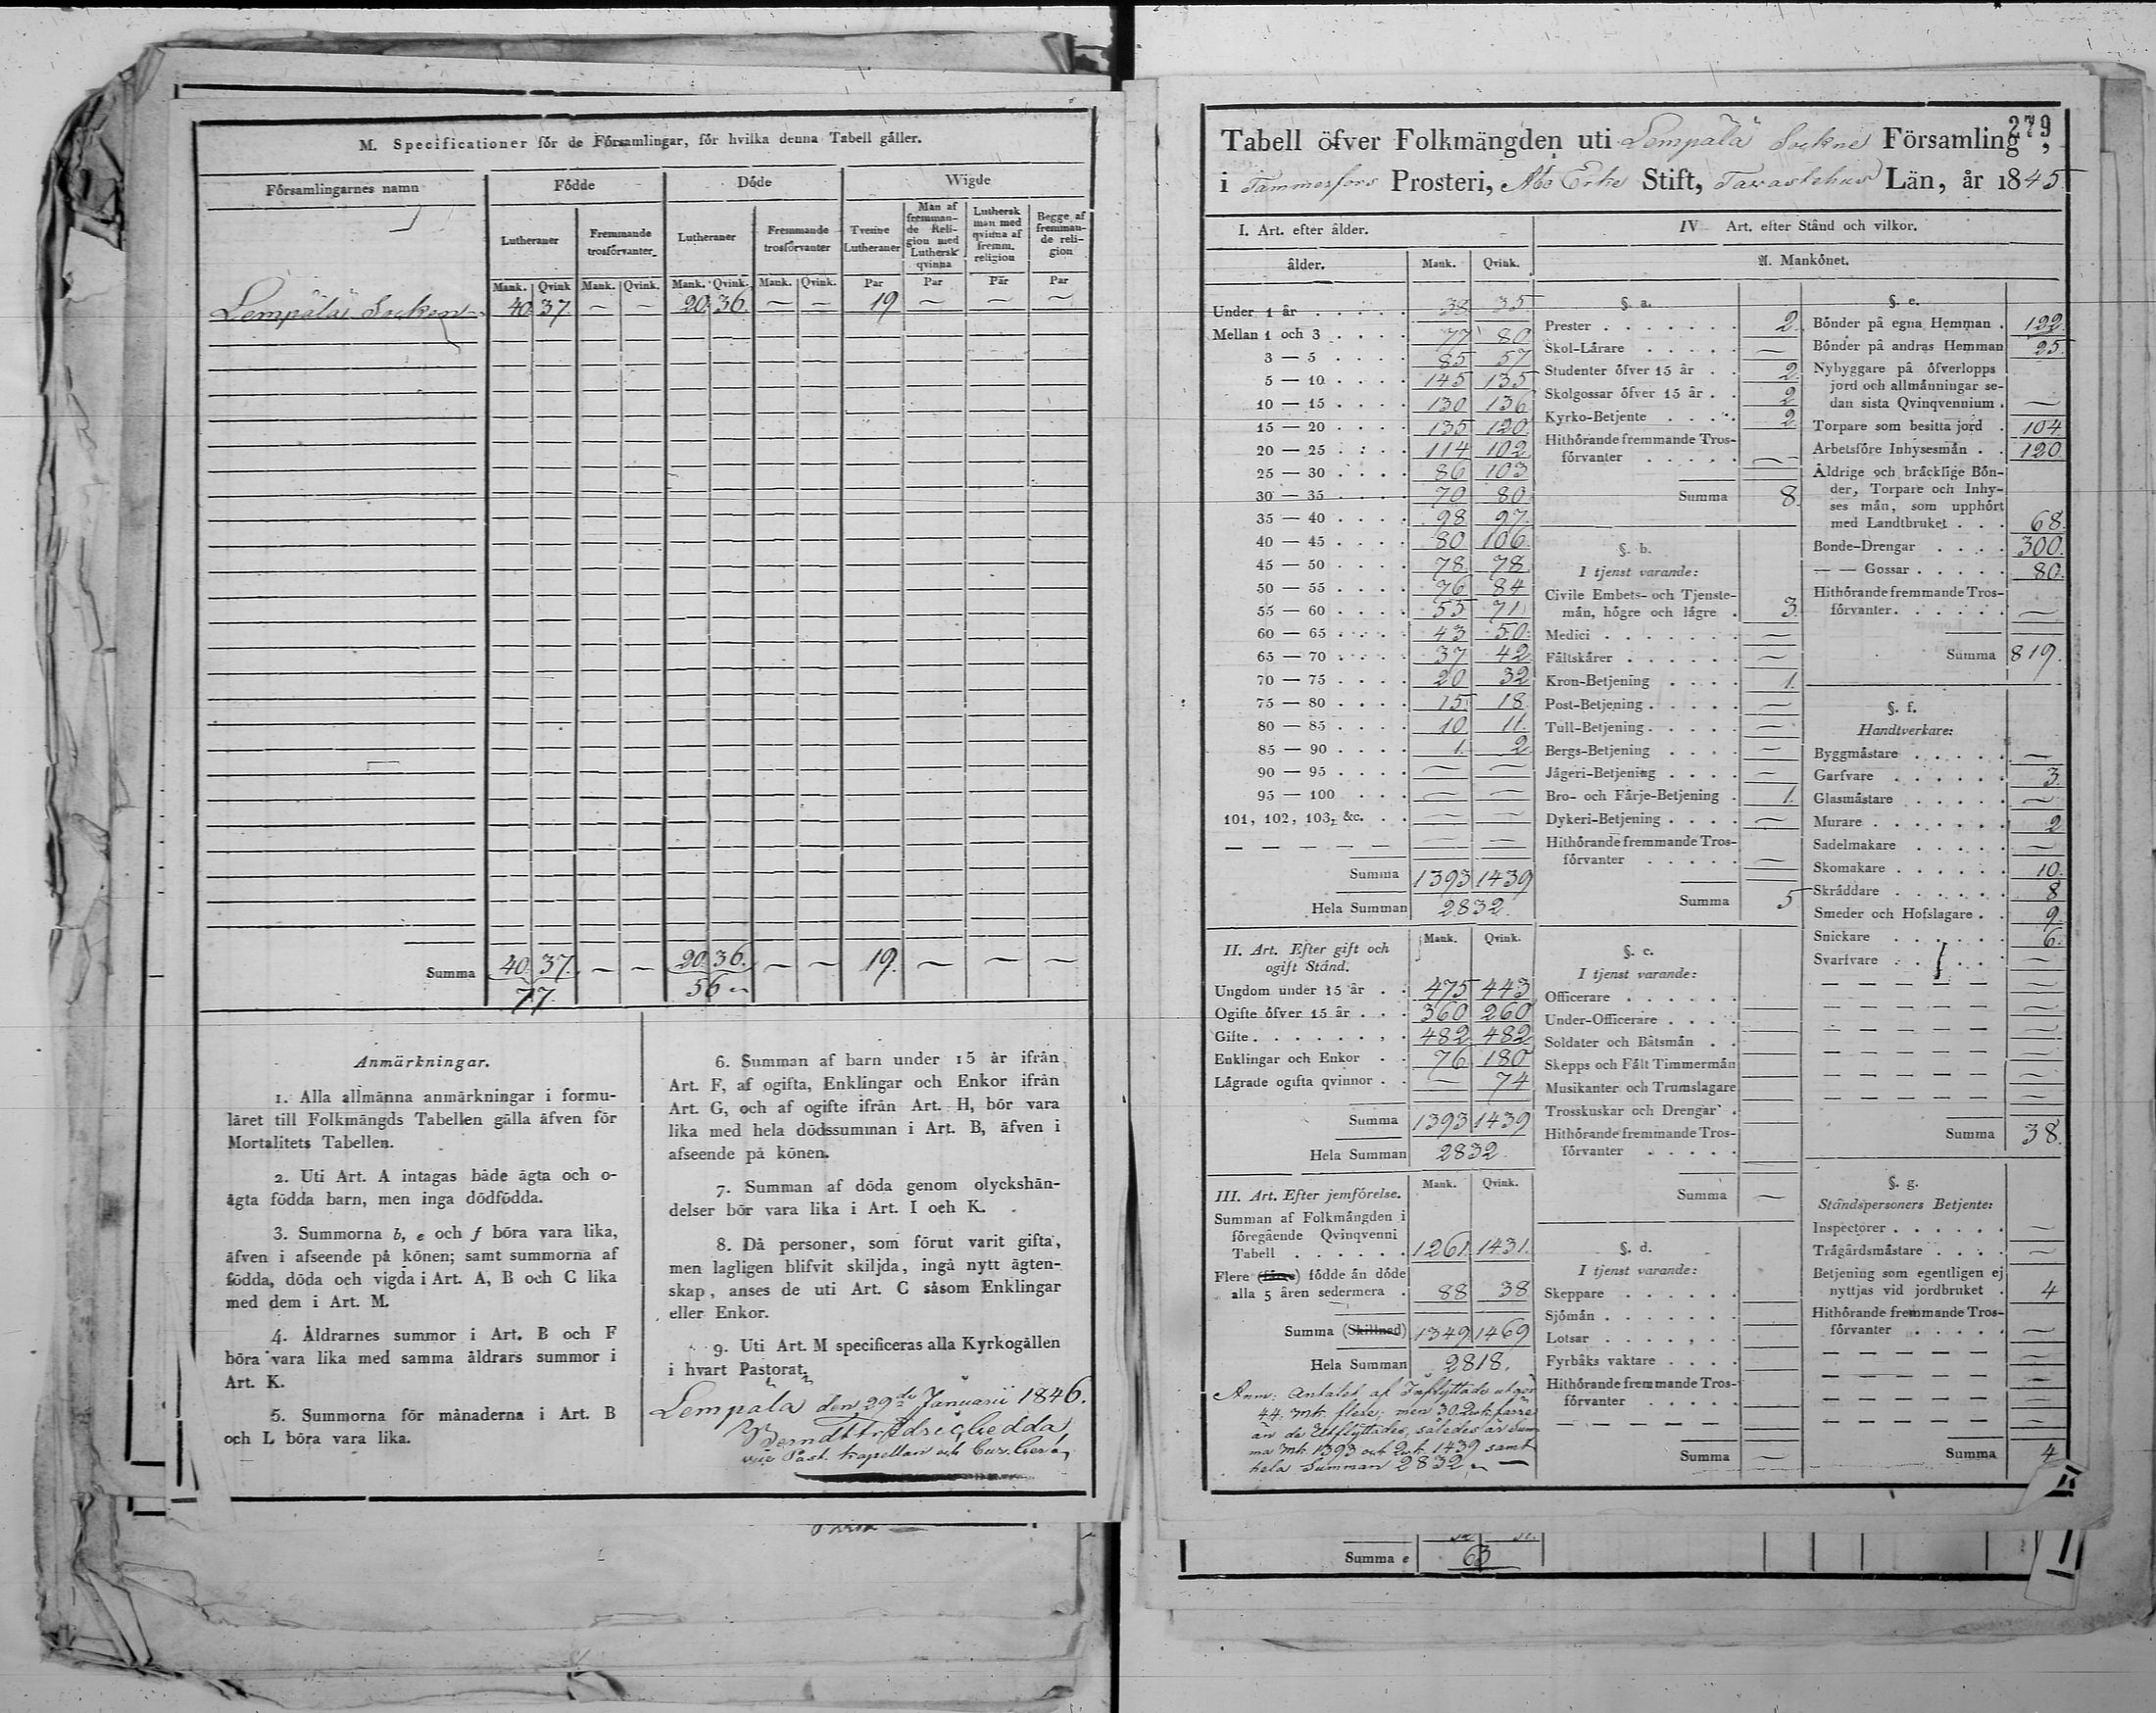 M. Specificationer för de Församlingar, för hvilka denna Tabell gäller.
Församlingarnes namn Födde Döde Wigde
Lutheraner Fremmande trosförvanter Lutheraner Fremmande trosförvanter Tvenne Lutheraner Man af fremmande Religion med Luthersk qvinna Luthersk man med qvinna af fremm. religion Begge af fremmande religion
Mank. Qvink Mank. Qvink. Mank. Qvink. Mank. Qvink. Par Par Par Par
Lempälä Socken 40 37. — — 20. 36. — — 19 — — —
Summa 40. 37. — — 20. 36. — — 19. — — —
77. 56
Anmärkningar.
1. Alla allmänna anmärkningar i formu-
läret till Folkmängds Tabellen gälla äfven för
Mortalitets Tabellen.
2. Uti Art. A intagas både ägta och o-
ägta födda barn, men inga dödfödda.
3. Summorna b, e och f böra vara lika,
äfven i afseende på könen; samt summorna af
födda, döda och vigda i Art. A, B och C lika
med dem i Art. M.
4. Åldrarnes summor i Art. B och F
böra vara lika med samma åldrars summor i
Art. K.
5. Summorna för månaderna i Art. B
och L böra vara lika.
6. Summan af barn under 15 år ifrån
Art. F, af ogifta, Enklingar och Enkor ifrån
Art. G, och af ogifte ifrån Art. H, bör vara
lika med hela dödssumman i Art. B, äfven i
afseende på könen.
7. Summan af döda genom olyckshän-
delser bör vara lika i Art. I och K.
8. Då personer, som förut varit gifta,
men lagligen blifvit skiljda, ingå nytt ägten-
skap, anses de uti Art. C såsom Enklingar
eller Enkor.
9. Uti Art. M specificeras alla Kyrkogällen
i hvart Pastorat.
Lempälä den 29de Januarii 1846.
Berndt Fredric Hedda
vice Past. Kapellan och
279
Tabell öfver Folkmängden uti Lempälä Sockne Församling,
i Tammerfors Prosteri, Åbo Erke Stift, Tavastehus Län, år 1845
I. Art. efter ålder.
ålder. Mank. Qvink.
Under 1 år 38 35
Mellan 1 och 3 77 80
3 — 5 85 57
5 — 10 145 135
10 — 15 130 136
15 — 20 135 120
20 — 25 114 102
25 — 30 86 103
30 — 35 70 80
35 — 40 98 97
40 — 45 80 106
45 — 50 78 78
50 — 55 76 84
55 — 60 55 71
60 — 65 43 50
65 — 70 37 42
70 — 75 20 32
75 — 80 15 18
80 — 85 10 11.
85 — 90 1. 2
90 — 95 — —
95 — 100 — —
101, 102, 103, &c. — —
Summa 1393 1439
Hela Summan 2832.
II. Art. Efter gift och ogift Stånd. Mank. Qvink.
Ungdom under 15 år 475 443
Ogifte öfver 15 år 360 260
Gifte 482 482
Enklingar och Enkor 76 180
Lägrade ogifta qvinnor — 74
Summa 1393 1439
Hela Summan 2832
III. Art. Efter jemförelse. Mank. Qvink.
Summan af Folkmängden i
föregående Qvinqvenni
Tabell 1261 1431.
Flere (färre) födde än döde
alla 5 åren sedermera 88 38
Summa (Skillnad) 1349 1469
Hela Summan 2818.
Anm: Antalet af Inflyttade utgör
44. Mk. flere; men 30 Qvk. färre
än de Utflyttades, således är Sum-
ma Mk. 1393 och Qvk. 1439 samt
hela Summan 2832
IV Art. efter Stånd och vilkor.
A. Mankönet.
§. a.
Prester 2.
Skol-Lärare —
Studenter öfver 15 år 2
Skolgossar öfver 15 år 2
Kyrko-Betjente 2
Hithörande fremmande Tros-
förvanter —
Summa 8.
§. b.
I tjenst varande:
Civile Embets- och Tjenste-
män, högre och lägre 3.
Medici —
Fältskärer —
Kron-Betjening 1.
Post-Betjening —
Tull-Betjening —
Bergs-Betjening —
Jägeri-Betjening —
Bro- och Färje-Betjening 1.
Dykeri-Betjening —
Hithörande fremmande Tros-
förvanter —
Summa 5
§. c.
I tjenst varande:
Officerare
Under-Officerare
Soldater och Båtsmän
Skepps och Fält Timmermän
Musikanter och Trumslagare
Trosskuskar och Drengar
Hithörande fremmande Tros-
förvanter
Summa —
§. d.
I tjenst varande:
Skeppare
Sjömän
Lotsar
Fyrbåks vaktare
Hithörande fremmande Tros-
förvanter
Summa —
§. e.
Bönder på egna Hemman 122.
Bönder på andras Hemman 25.
Nybyggare på öfverlopps
jord och allmänningar se-
dan sista Qvinqvennium —
Torpare som besitta jord 104
Arbetsföre Inhysesmän 120
Åldrige och bräcklige Bön-
der, Torpare och Inhy-
ses män, som upphört
med Landtbruket 68.
Bonde-Drengar 300.
— — Gossar 80.
Hithörande fremmande Tros-
förvanter —
Summa 819.
§. f.
Handtverkare:
Byggmästare —
Garfvare 3.
Glasmästare —
Murare 2
Sadelmakare —
Skomakare 10.
Skräddare 8
Smeder och Hofslagare 9.
Snickare 6.
Svarfvare —
Summa 38.
§. g.
Ståndspersoners Betjente:
Inspectorer —
Trägårdsmästare —
Betjening som egentligen ej
nyttjas vid jordbruket 4
Hithörande fremmande Tros-
förvanter —
Summa 4
Summa e 63